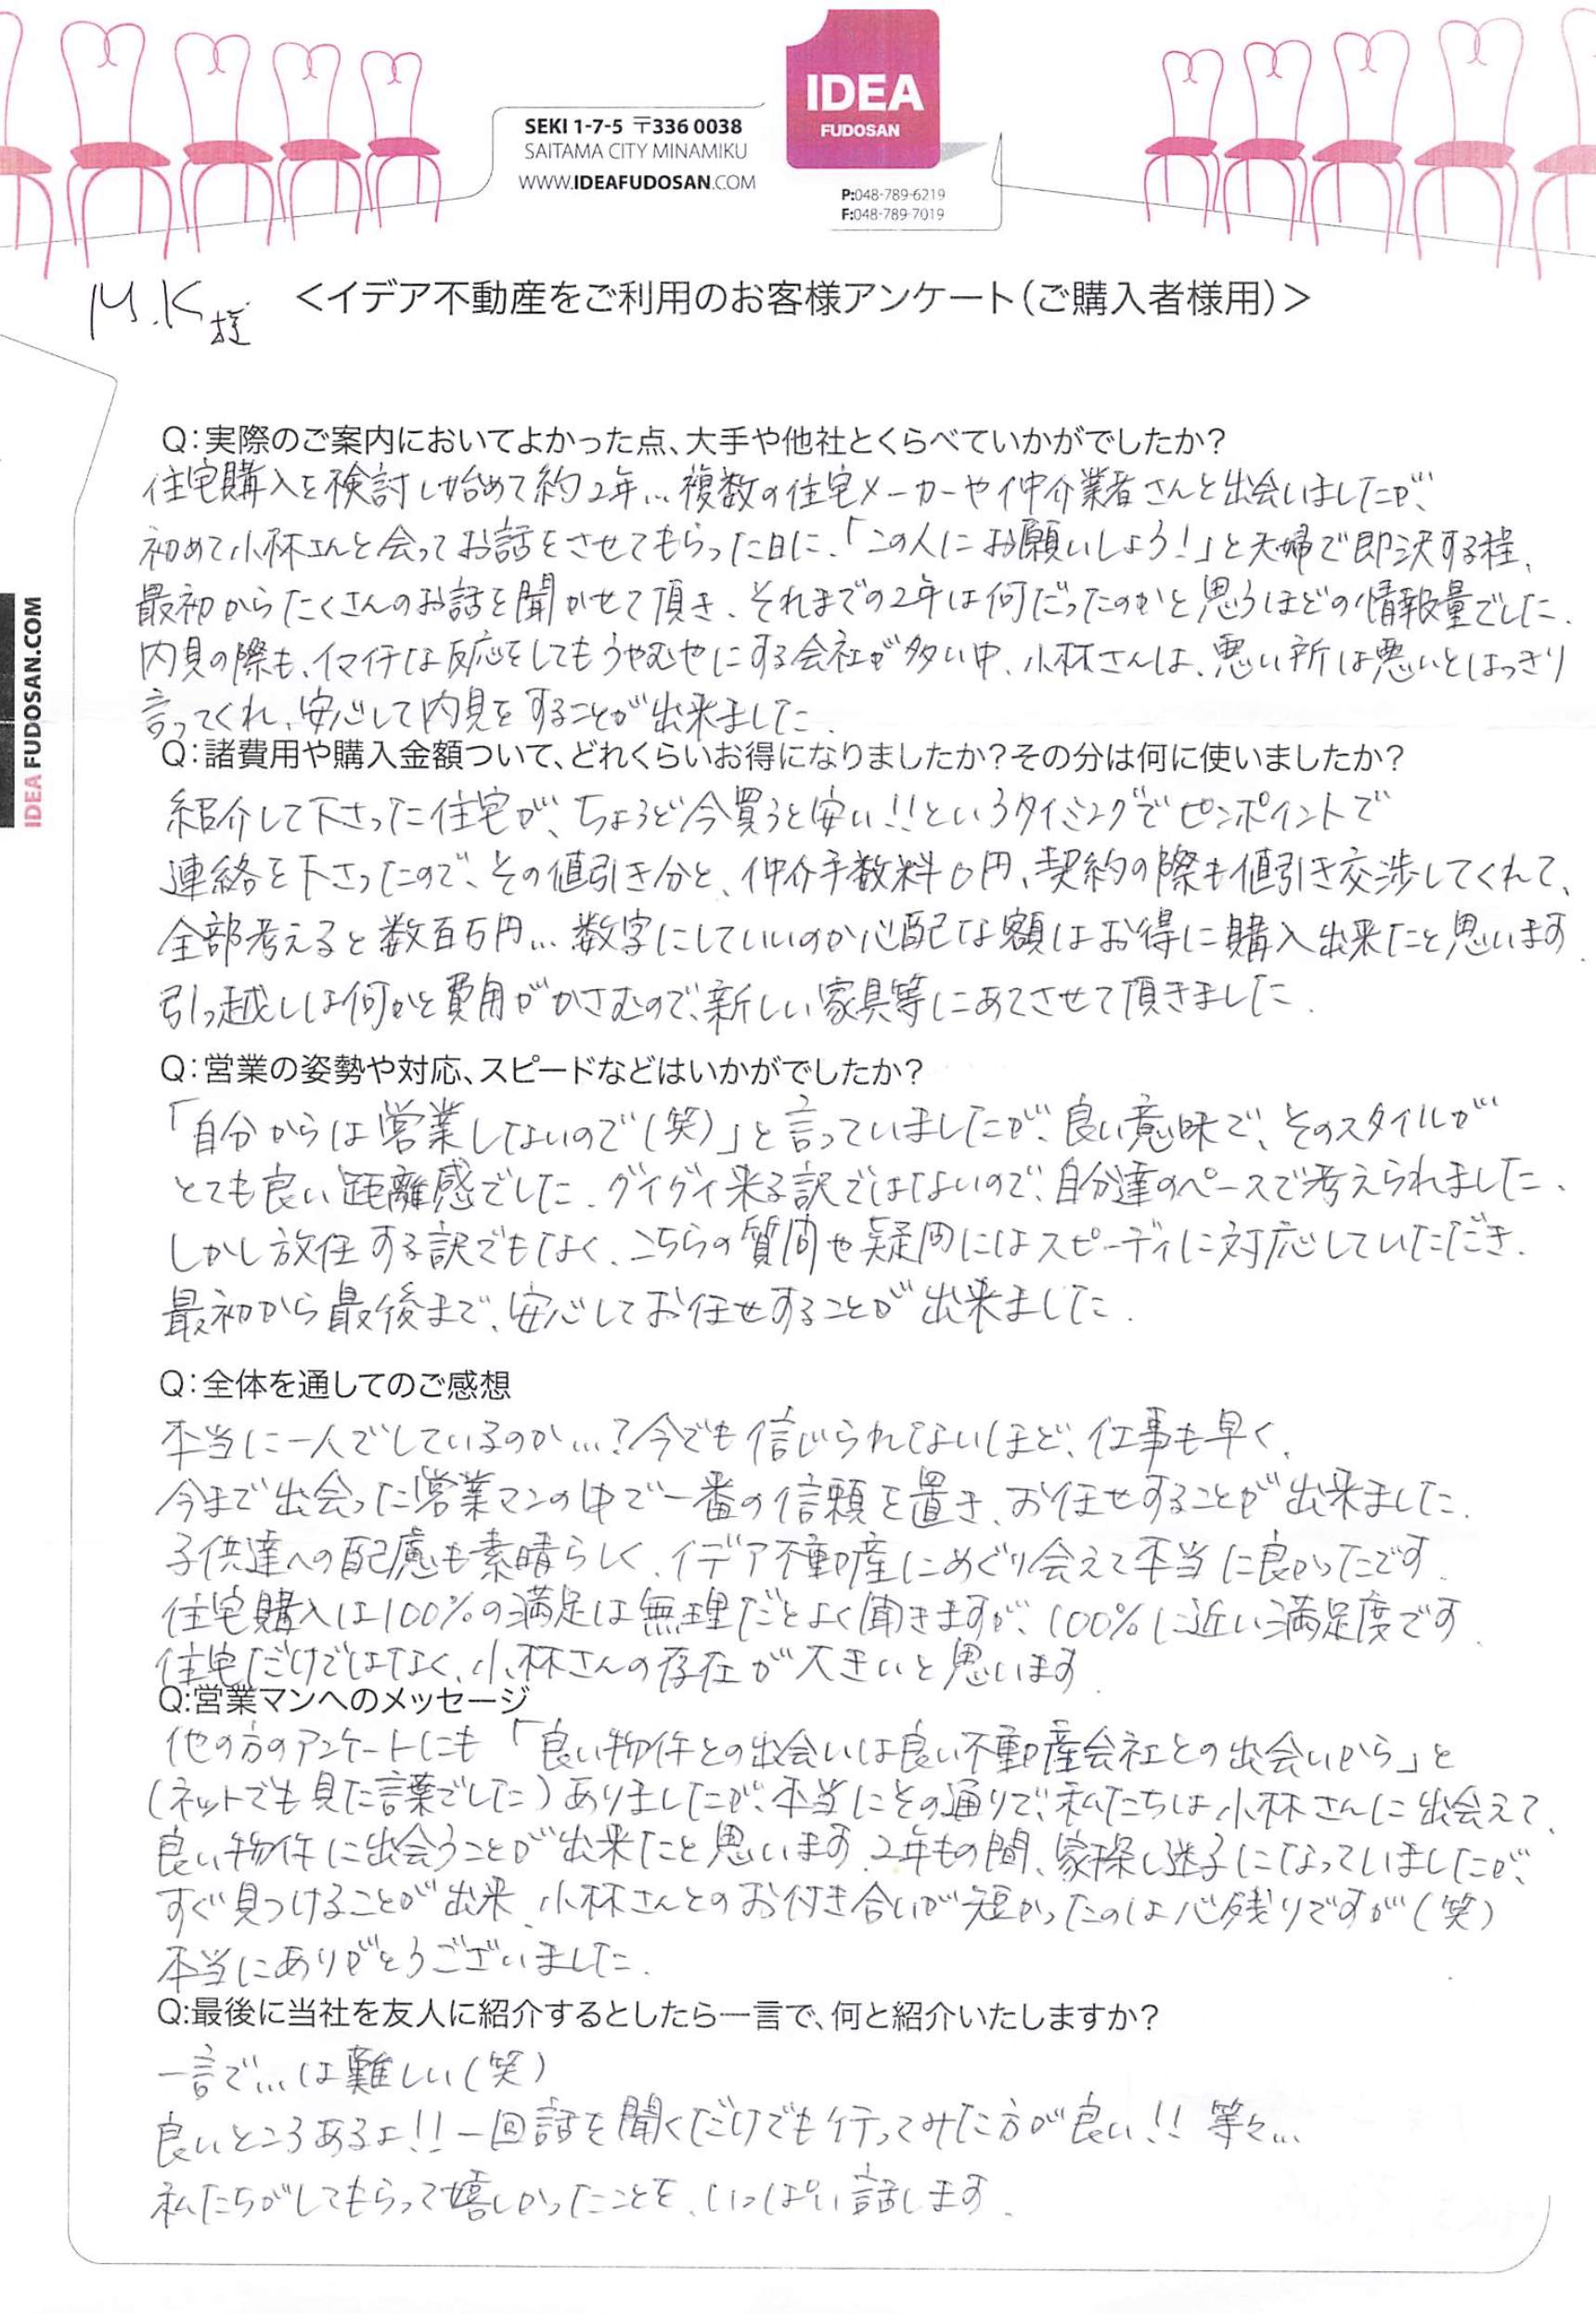 IDEA
FUDOSAN
SEKI 1-7-5 〒336 0038
SAITAMA CITY MINAMIKU
WWW.IDEAFUDOSAN.COM
P:048-789-6219
F:048-789-7019
M.K様
<イデア不動産をご利用のお客様アンケート(ご購入者様用)>
IDEA FUDOSAN.COM
Q:実際のご案内においてよかった点、大手や他社とくらべていかがでしたか?
住宅購入を検討し始めて約2年… 複数の住宅メーカーや仲介業者さんと出会いましたが、
初めて小林さんと会ってお話をさせてもらった日に、「この人にお願いしよう!」と夫婦で即決する程、
最初からたくさんのお話を聞かせて頂き、それまでの2年は何だったのかと思うほどの情報量でした.
内見の際も、イマイチな反応をしてもうやむやにする会社が多い中、小林さんは、悪い所は悪いとはっきり
言ってくれ、安心して内見をすることが出来ました.
Q:諸費用や購入金額ついて、どれくらいお得になりましたか?その分は何に使いましたか?
紹介して下さった住宅が、ちょうど今買うと安い!!というタイミングでピンポイントで
連絡を下さったので、その値引き分と、仲介手数料0円、契約の際も値引き交渉してくれて、
全部考えると数百万円… 数字にしていいのか心配な額はお得に購入出来たと思います.
引っ越しは何かと費用がかさむので、新しい家具等にあてさせて頂きました.
Q:営業の姿勢や対応、スピードなどはいかがでしたか?
「自分からは営業しないので(笑)」と言っていましたが、良い意味で、そのスタイルが
とても良い距離感でした. グイグイ来る訳ではないので、自分達のペースで考えられました.
しかし放任する訳でもなく、こちらの質問や疑問にはスピーディに対応していただき.
最初から最後まで、安心してお任せすることが出来ました.
Q:全体を通してのご感想
本当に一人でしているのか…?今でも信じられないほど、仕事も早く、
今まで出会った営業マンの中で一番の信頼を置き、お任せすることが出来ました.
子供達への配慮も素晴らしく、イデア不動産にめぐり会えて本当に良かったです.
住宅購入は100%の満足は無理だとよく聞きますが、100%に近い満足度です.
住宅だけではなく、小林さんの存在が大きいと思います.
Q:営業マンへのメッセージ
他の方のアンケートにも「良い物件との出会いは良い不動産会社との出会いから」と
(ネットでも見た言葉でした)ありましたが、本当にその通りで、私たちは小林さんに出会えて、
良い物件に出会うことが出来たと思います. 2年もの間、家探し迷子になっていましたが、
すぐ見つけることが出来、小林さんとのお付き合いが短かったのは心残りですが(笑)
本当にありがとうございました.
Q:最後に当社を友人に紹介するとしたら一言で、何と紹介いたしますか?
一言で…は難しい(笑)
良いところあるよ!!一回話を聞くだけでも行ってみた方が良い!! 等々…
私たちがしてもらって嬉しかったことを、いっぱい話します.